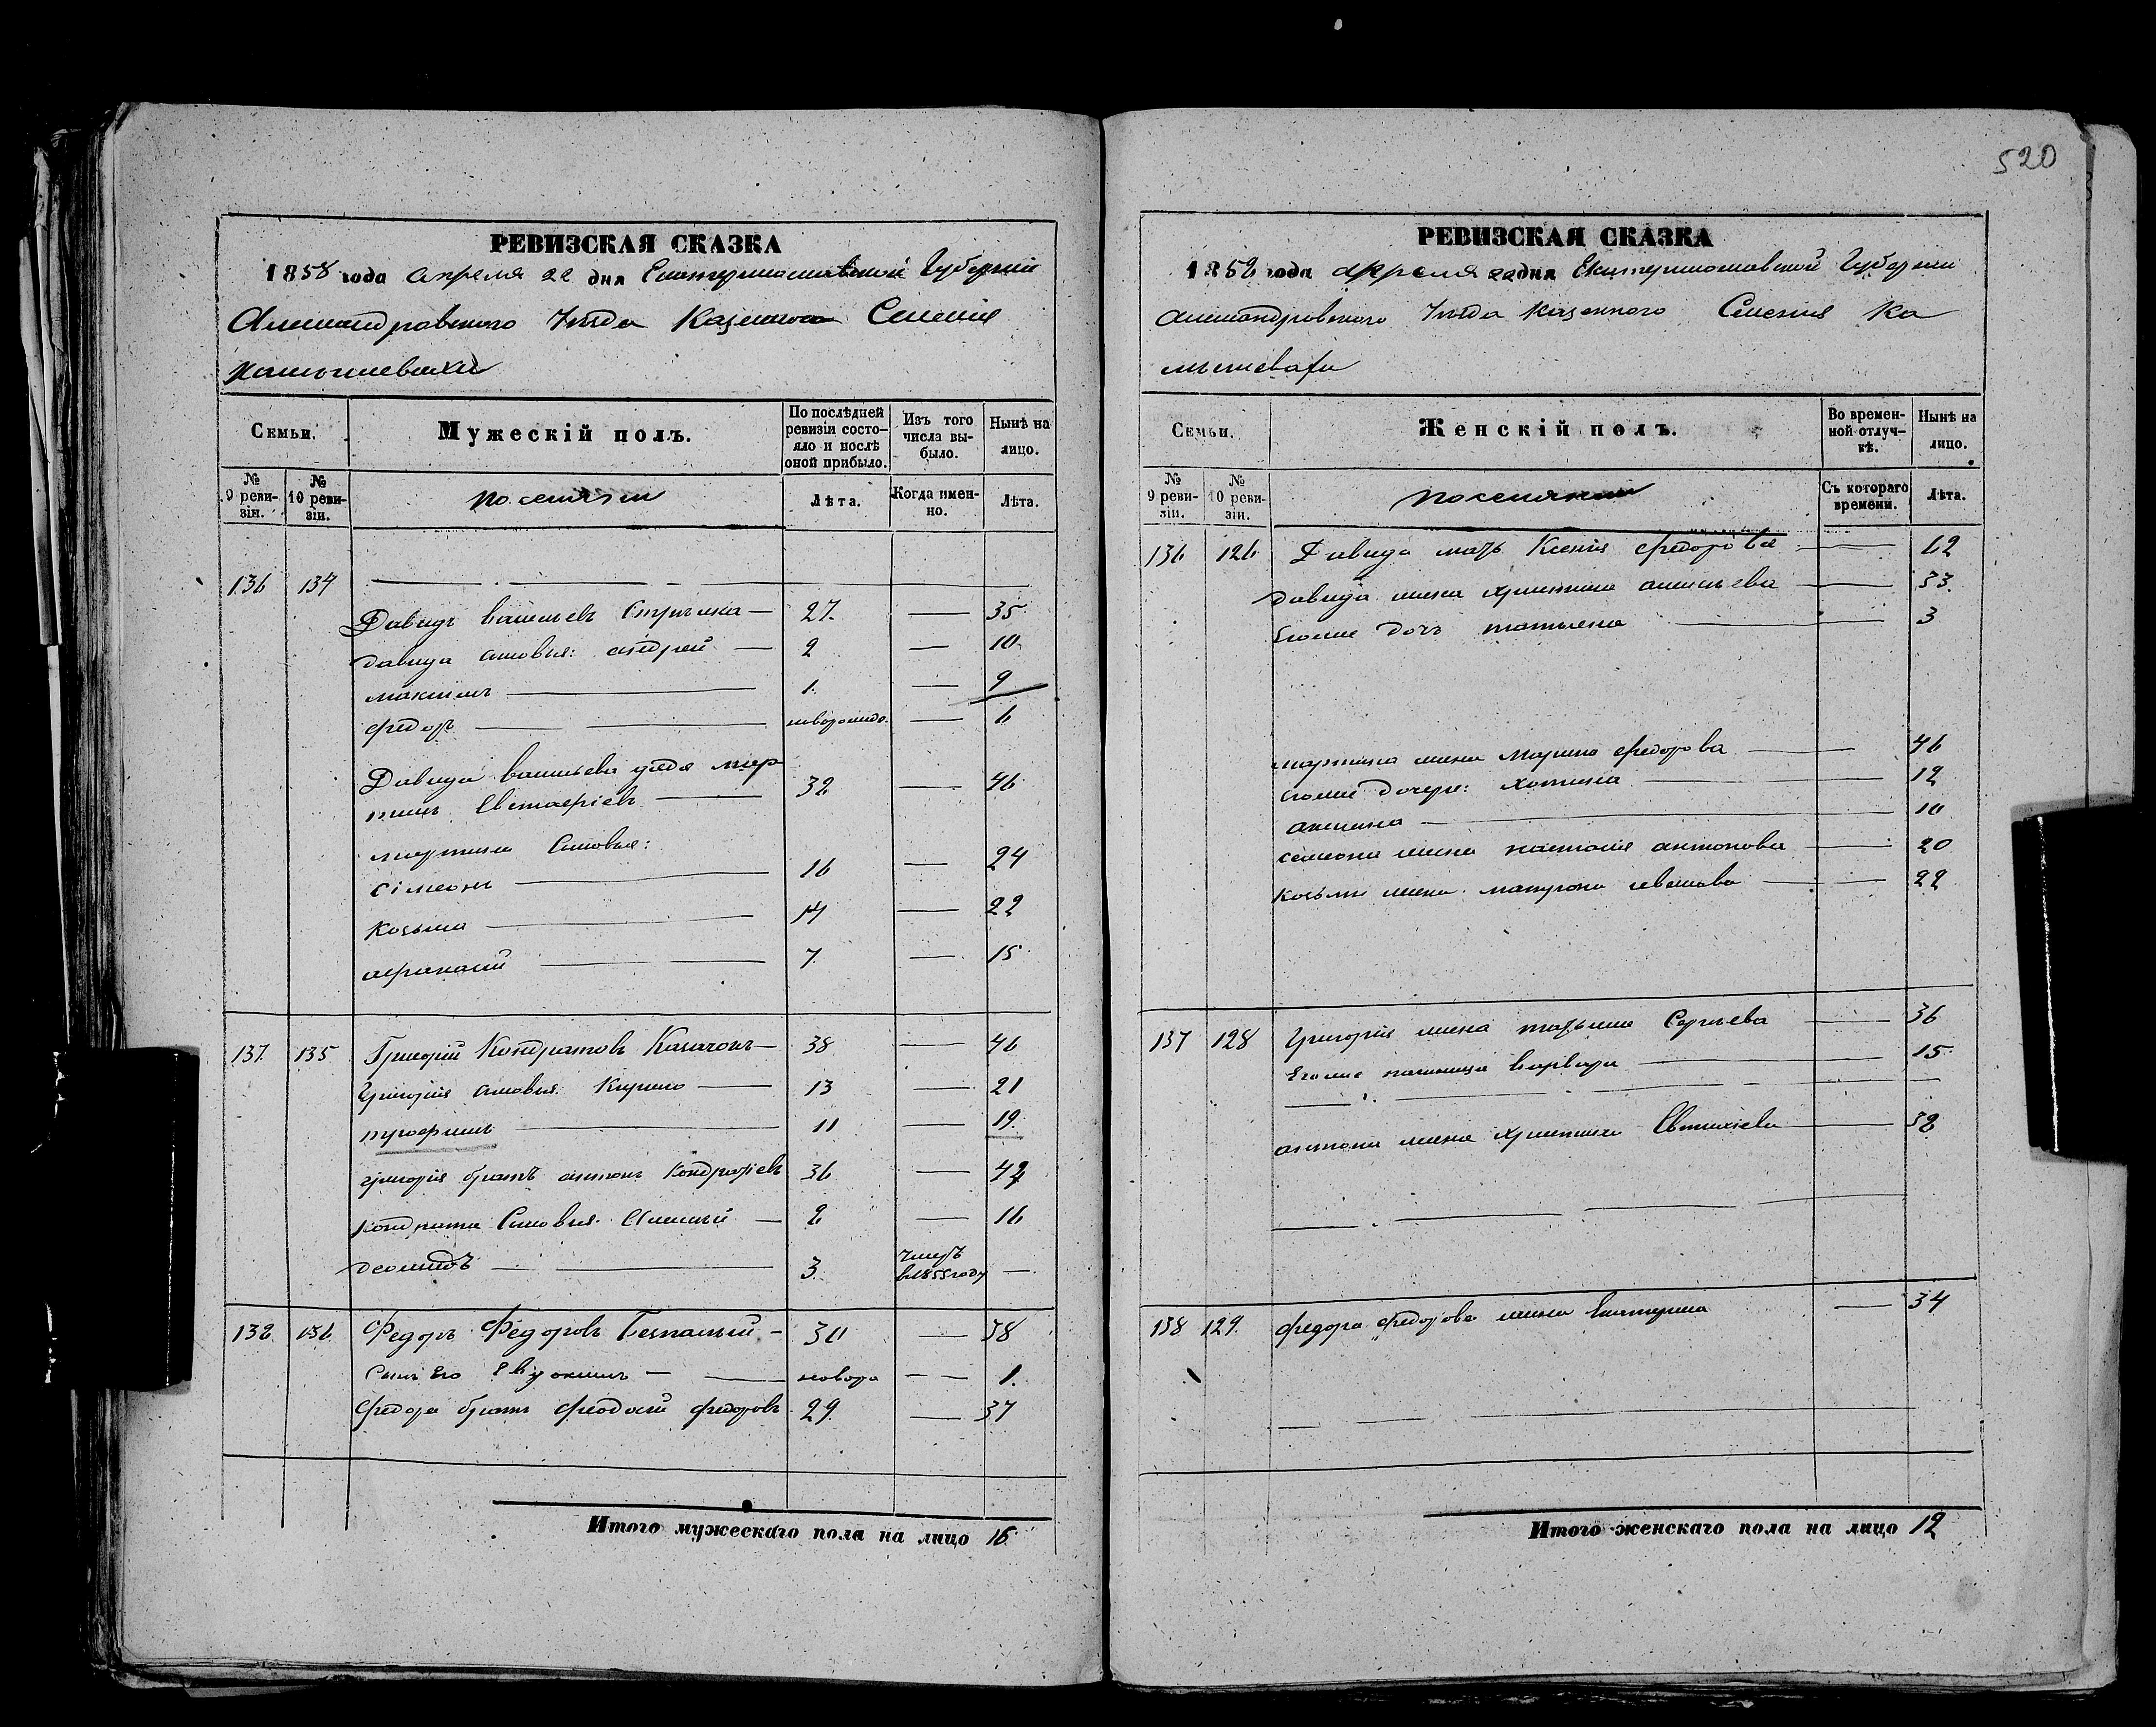 520
РЕВИЗСКАЯ СКАЗКА
1858 года апреля 22 дня Екатеринославской Губернии
Александровского Уезда Казенного Селения
Камышевахи
Семьи.
Мужескій полъ.
По послѣдней ревизіи состояло и послѣ оной прибыло.
Изъ того числа выбыло.
Нынѣ на лицо.
№ 9 ревизіи.
№ 10 ревизіи.
поселяни
Лѣта.
Когда именно.
Лѣта.
136 134
Давидъ васильевъ — 27. — 35
давида сыновья: андрей — 2 — 10
максимъ — 1. — 9
федоръ — новорожде. — 6
Давида васильева дядя мар
тинъ Евстафіевъ — 32 — 46
мартина Сыновья:
сімеонъ — 16 — 24
Козьма — 14 — 22
афанасий — 7 — 15
137. 135 Григорий Кондратовъ Казачокъ — 38 — 46
Григорія сыновья: Кирило — 13 — 21
— 11 — 19.
григорія братъ антонъ Кондратіевъ 36 — 44
кондрата Сыновья: Алексей — 8 — 16
деомидъ — 3. умеръ в 1855 году —
138. 136. Федоръ Федоровъ Безпалый — 30 — 38
Сынъ Его Евдокимъ — новоро — 1.
Федора братъ феодосий федоровъ 29. — 37
Итого мужескаго пола на лицо 16.
РЕВИЗСКАЯ СКАЗКА
1858 года апреля 22 дня Екатеринославской Губернии
александровского Уезда казенного Селения Ка
мышевахи
Семьи.
Женскій полъ.
Во временной отлучкѣ.
Нынѣ на лицо.
№ 9 ревизіи.
№ 10 ревизіи.
поселянки
Съ котораго времени.
Лѣта.
136 126 Давида мать Ксенія федорова — 62
давида жена христина — 33.
Егоже дочь татьяна — 3
мартина жена Марина федорова — 46
Егоже дочери: — 12
акилина — 10
семеона жена настасія антонова — 20
козьмы жена матрона — 22
137 128 Григорія жена татьяна Сергеева — 36
Егоже падчерица варвара — 15
антона жена христина Евтихіева — 38
138 129. федора федорова жена Екатерина — 34
Итого женскаго пола на лицо 12